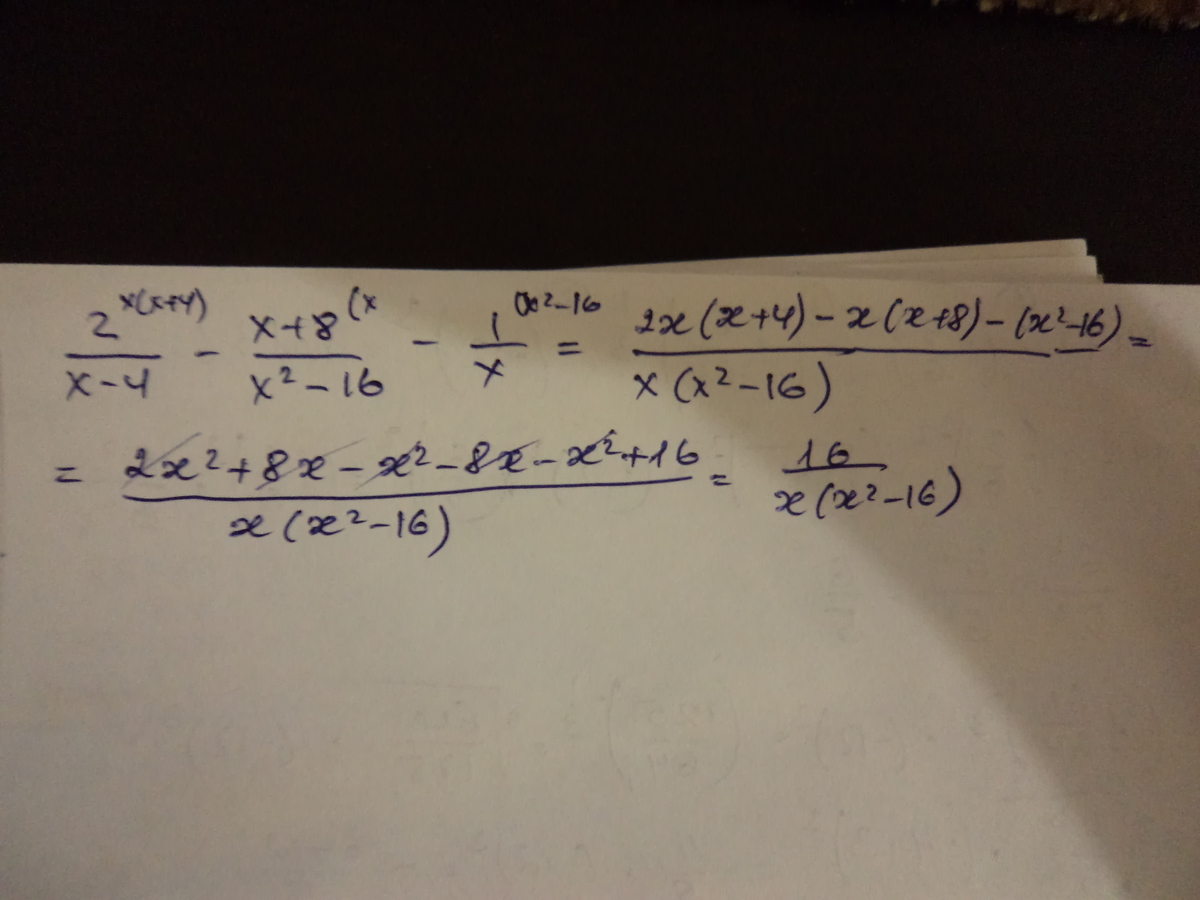 2^{x(x+4)}/(x-4) - (x+8)^{(x}/(x²-16) - 1^{(x²-16}/x = (2x(x+4)-x(x+8)-(x²-16))/(x(x²-16)) =
= (2x²+8x-x²-8x-x²+16)/(x(x²-16)) = 16/(x(x²-16))